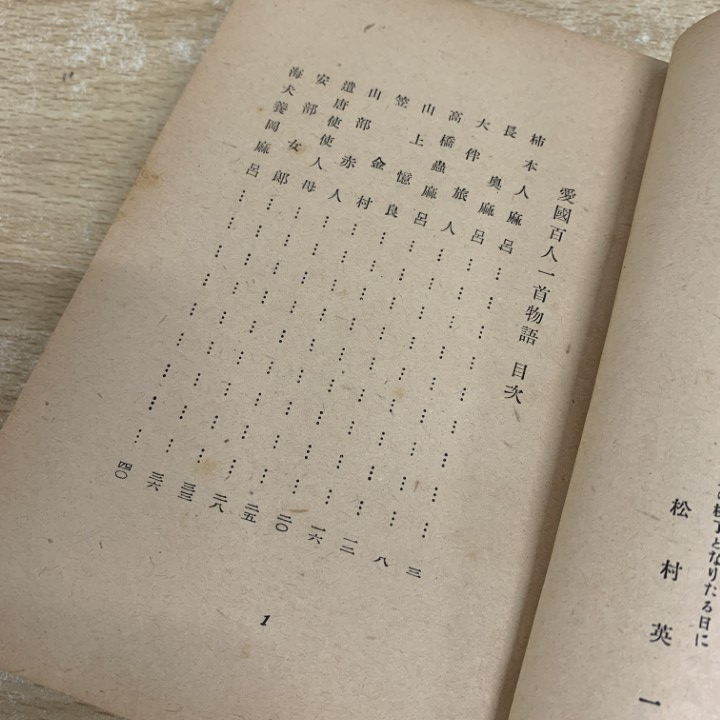 校了となりたる日に
松村英一
愛國百人一首物語 目次
柿本人麻呂………………………三
長奥麻呂………………………八
大伴旅人………………………一二
高橋蟲麻呂………………………一六
山上憶良………………………二〇
笠金村………………………二五
山部赤人………………………二八
遣唐使使人母………………………三三
安部女郎………………………三六
海犬養岡麻呂………………………四〇
1